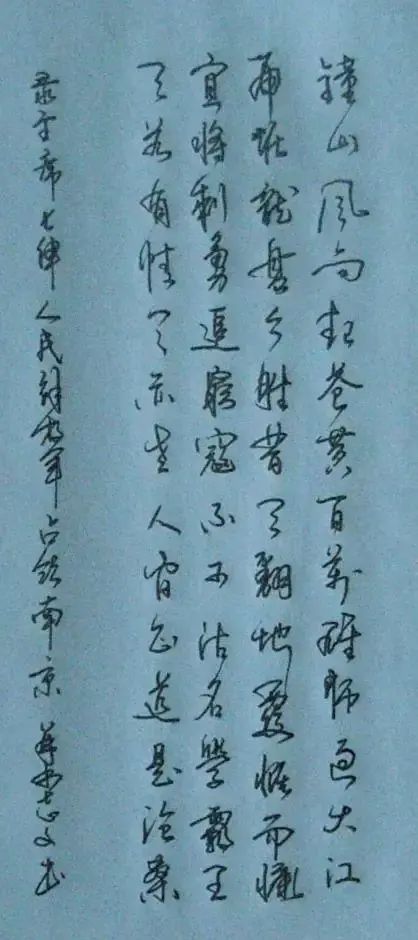 鐘山风雨起苍黄百万雄師过大江
虎踞龍盘今胜昔天翻地覆慨而慷
宜将剩勇追窮寇不可沽名學霸王
天若有情天亦老人间正道是沧桑
录主席七律人民解放军占领南京 书